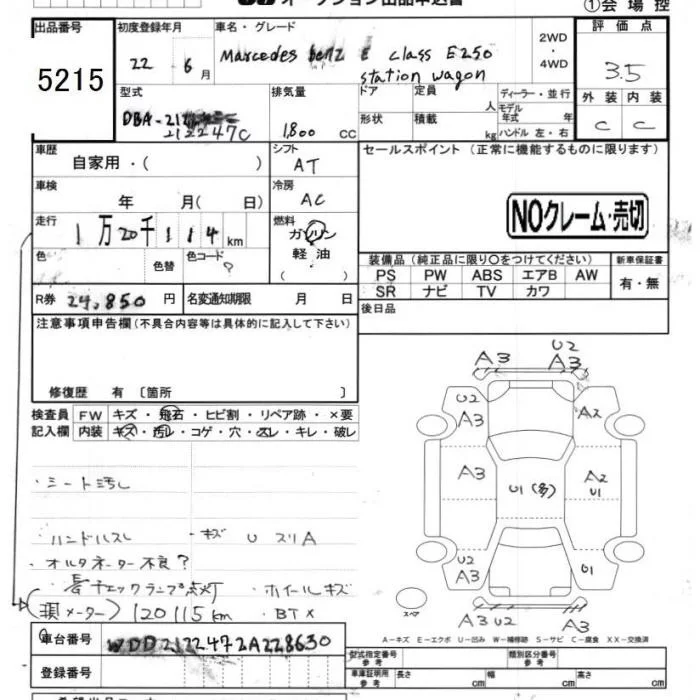 オークション出品申込書 ①会場控
出品番号 初度登録年月 車名・グレード 評価点
5215 22年 6月 Marcedes benz E class E250 station wagon 2WD・4WD 3.5
型式 排気量 ドア 定員 人 ディーラー・並行 外装 内装
DBA-212247C 1,800 cc 形状 積載 kg モデル年式 年 ハンドル 左・右 C C
車歴 シフト セールスポイント (正常に機能するものに限ります)
自家用・( ) AT
車検 冷房
年 月( 日) AC
NOクレーム・売切
走行 燃料
1万20千114km ガソリン
軽油
( )
色 色替 色コード ?
装備品 (純正品に限り○をつけてください) 新車保証書
PS PW ABS エアB AW 有・無
SR ナビ TV カワ
R券 24,850円 名変通知期限 月 日 後日品
注意事項申告欄(不具合内容等は具体的に記入して下さい)
修復歴 有 〔箇所 〕
検査員 FW キズ・飛石・ヒビ割・リペア跡・×要
記入欄 内装 キズ・汚レ・コゲ・穴・スレ・キレ・破レ
・シート汚し
・ハンドルスレ ・キズ U スリA
・オルタネーター不良?
・チェックランプ点灯 ・ホイールキズ
メーター) 120115km ・BT×
U2
A3 A3
U2
A3 A2
A3 U1(多) A2
U1
U2
A3 U1
スペア A3 U2 A3
A-キズ E-エクボ U-凹み W-補修跡 S-サビ C-腐食 XX-交換済
車台番号 WDD2122472A228630
登録番号
型式指定番号 参考 類別区分番号 参考
車庫証明用 参考 長さ cm 幅 cm 高さ cm